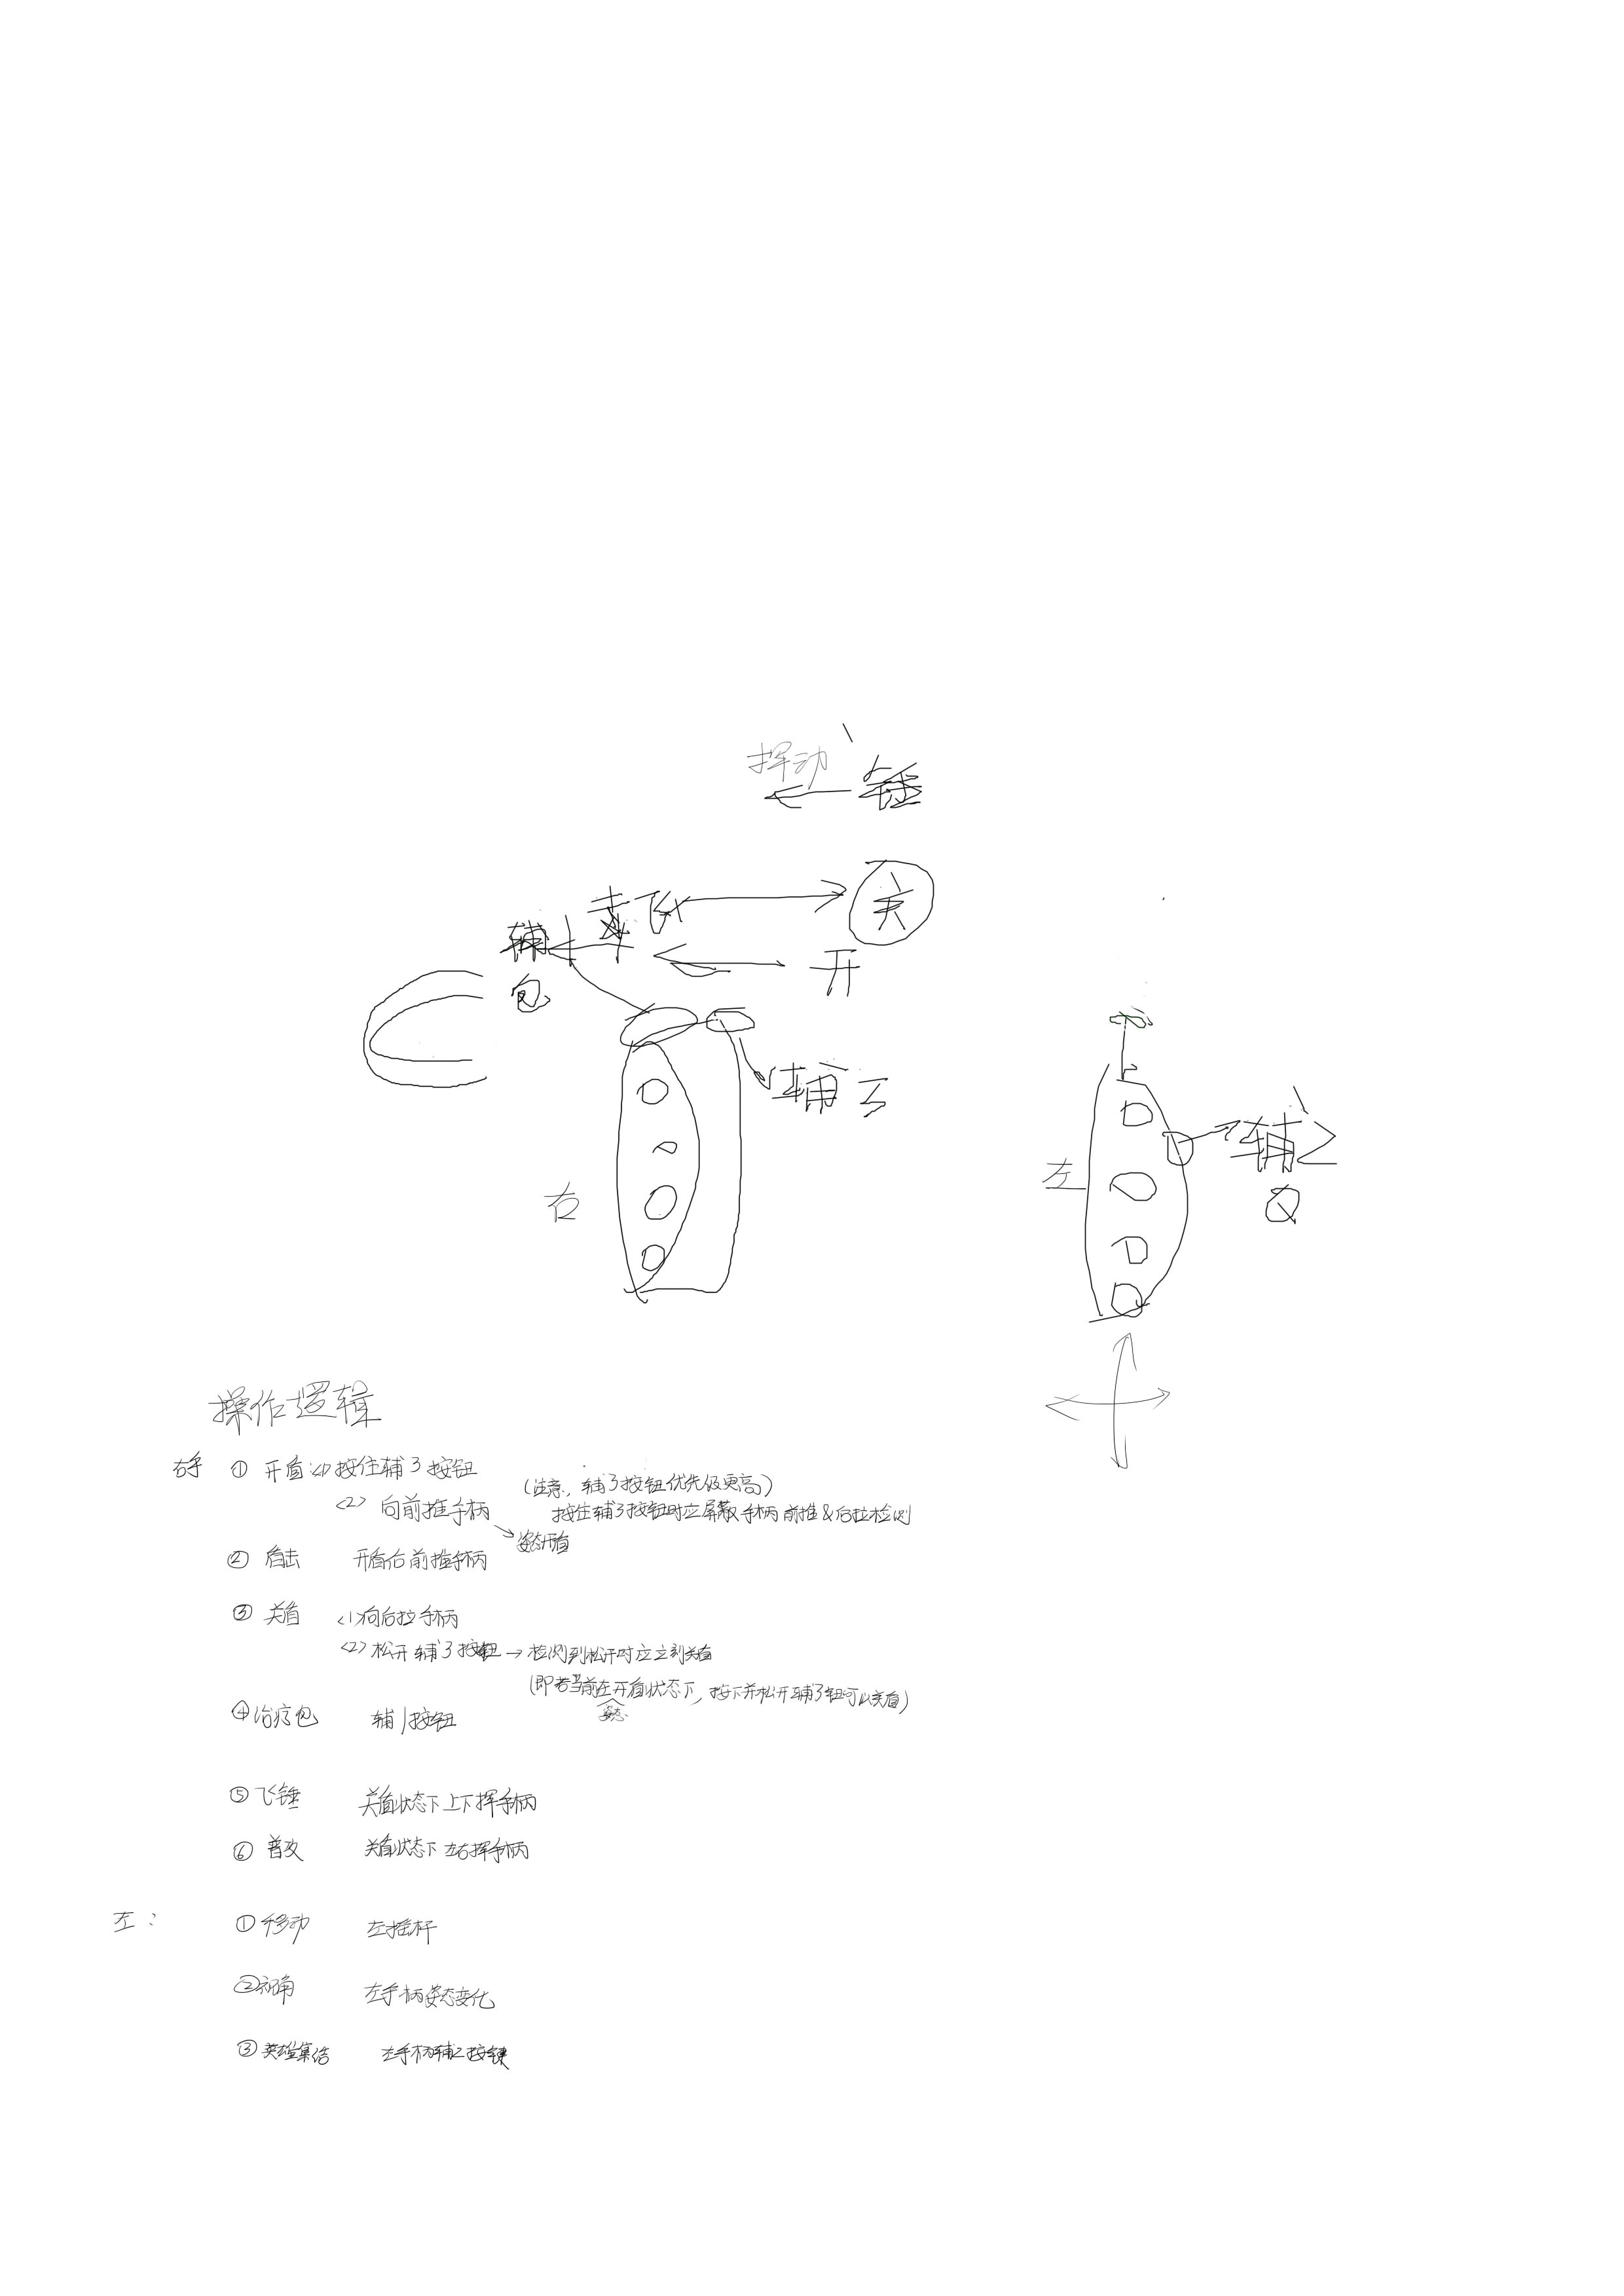 挥动
锤
关
辅1
开
包
辅3
左
辅2
右
Q
操作逻辑
右手 ① 开盾:<1>按住辅3按钮 (注意,辅3按钮优先级更高)
<2> 向前推手柄 按住辅3按钮时应屏蔽手柄前推&后拉检测
姿态开盾
② 盾击 开盾后前推手柄
③ 关盾 <1>向后拉手柄
<2>松开辅3按钮→检测到松开时应立刻关盾
(即若当前在开盾状态下,按下并松开辅3钮可以关盾)
姿态
④治疗包 辅1按钮
⑤飞锤 关盾状态下上下挥手柄
⑥ 普攻 关盾状态下左右挥手柄
左: ①移动 左摇杆
②视角 左手柄姿态变化
③英雄集结 左手柄辅2按键